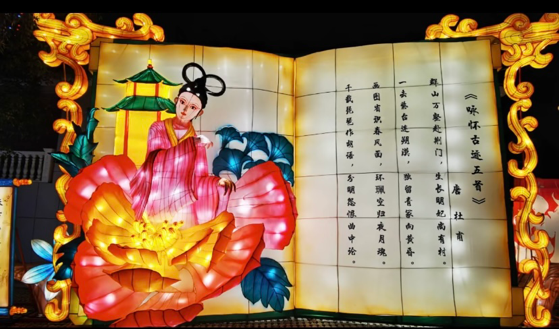 《咏怀古迹五首》
唐 杜甫
群山万壑赴荆门，生长明妃尚有村。
一去紫台连朔漠，独留青冢向黄昏。
画图省识春风面，环珮空归夜月魂。
千载琵琶作胡语，分明怨恨曲中论。